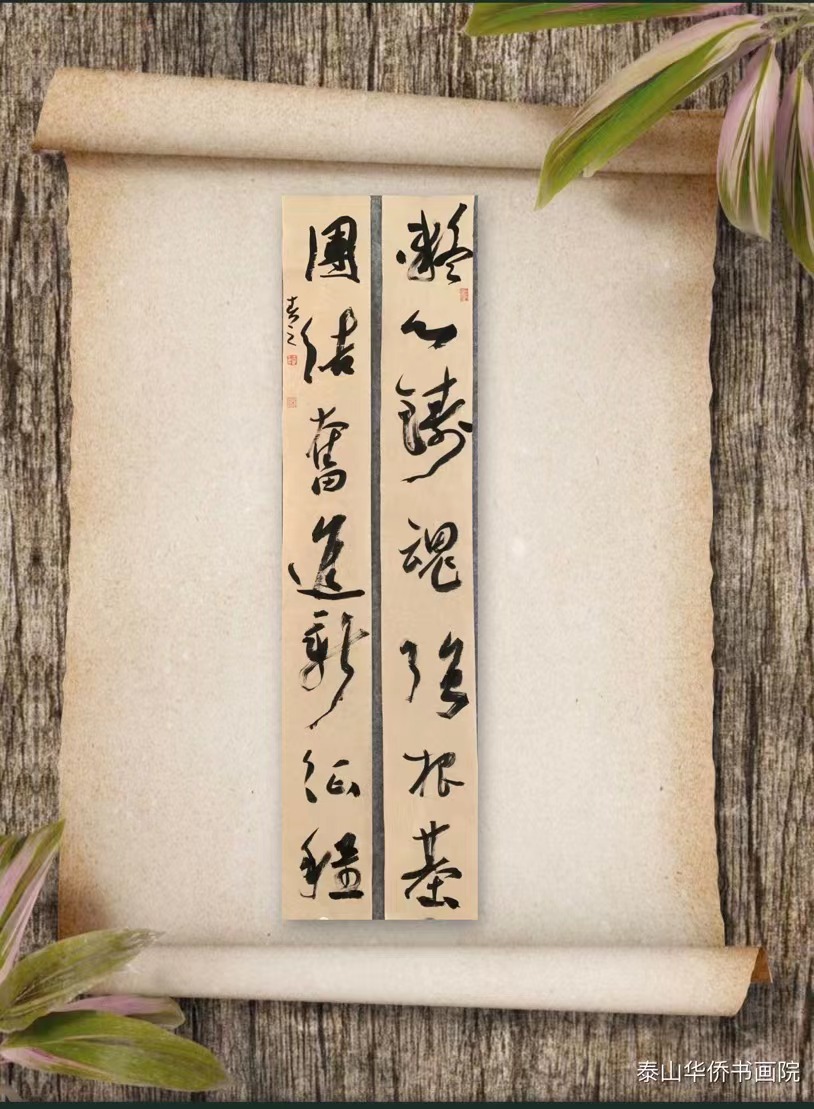 凝心鑄魂强根基
團结奮進新征程
泰山华侨书画院